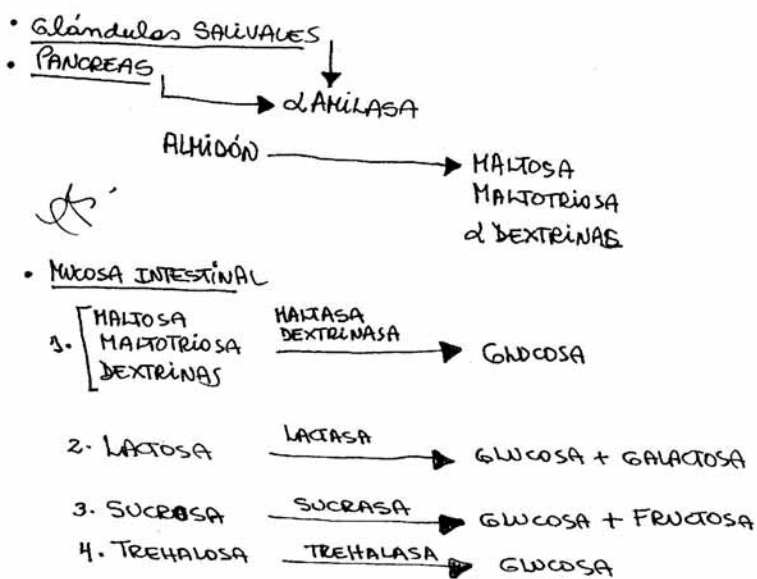 • Glándulas SALIVALES
• PANCREAS
α AMILASA
ALMIDÓN → MALTOSA
MALTOTRIOSA
α DEXTRINAS
• MUCOSA INTESTINAL
1. MALTOSA MALTASA
MALTOTRIOSA DEXTRINASA → GLUCOSA
DEXTRINAS
2. LACTOSA LACTASA → GLUCOSA + GALACTOSA
3. SUCROSA SUCRASA → GLUCOSA + FRUCTOSA
4. TREHALOSA TREHALASA → GLUCOSA